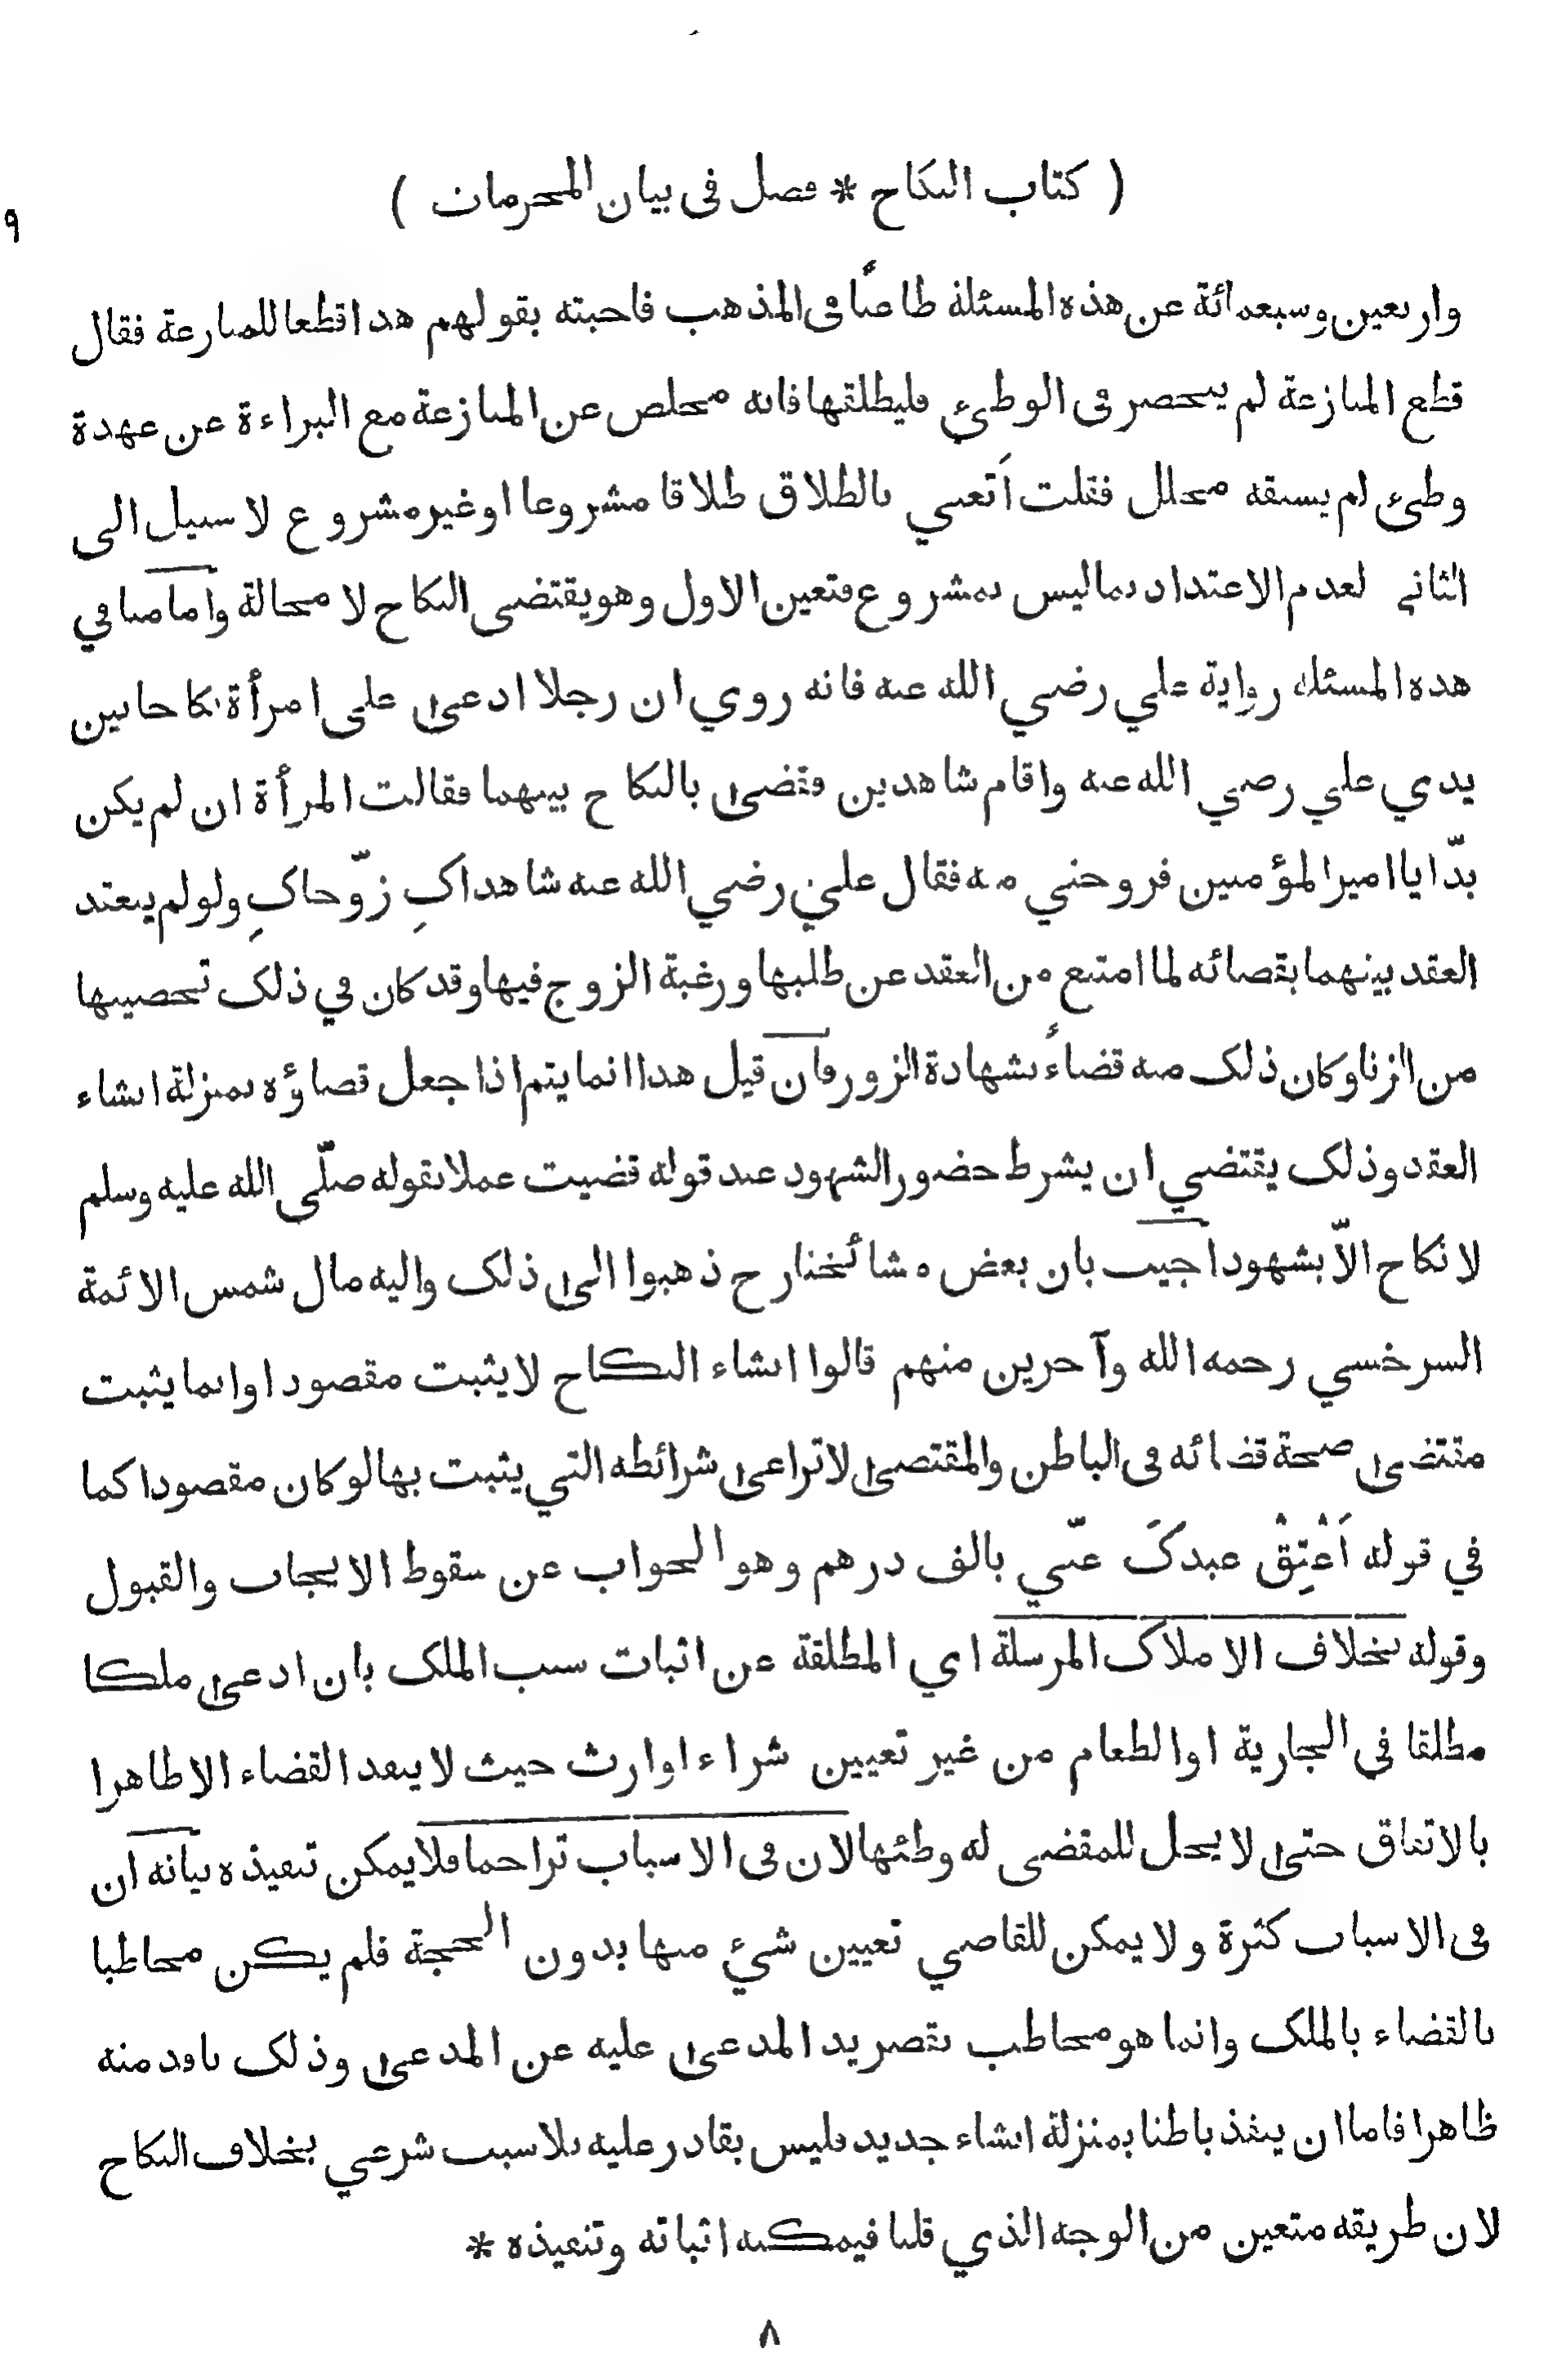 ( كتاب النكاح * فصل في بيان المحرمات )
٩
واربعين وسبعمائة عن هذه المسئلة طاعنًا في المذهب فاجبته بقولهم هذا قطعا للمنازعة فقال
قطع المنازعة لم ينحصر في الوطئ فليطلقها فانه مخلص عن المنازعة مع البراءة عن عهدة
وطئ لم يسبقه محلل فقلت اَتعني بالطلاق طلاقا مشروعا او غير مشروع لا سبيل الى
الثاني لعدم الاعتداد بما ليس بمشروع فتعين الاول وهو يقتضي النكاح لا محالة وامامنا في
هذه المسئلة رواية علي رضي الله عنه فانه روي ان رجلا ادعىٰ على امرأة نكاحا بين
يدي علي رضي الله عنه واقام شاهدين فقضىٰ بالنكاح بينهما فقالت المرأة ان لم يكن
بدّا يا امير المؤمنين فزوجني منه فقال علي رضي الله عنه شاهداكِ زوّجاكِ ولو لم ينعقد
العقد بينهما بقضائه لما امتنع من العقد عن طلبها ورغبة الزوج فيها وقد كان في ذلك تحصينها
من الزنا وكان ذلك منه قضاءً بشهادة الزور فان قيل هذا انما يتم اذا جعل قضاؤه بمنزلة انشاء
العقد وذلك يقتضي ان يشرط حضور الشهود عند قوله قضيت عملا بقوله صلّى الله عليه وسلم
لا نكاح الاّ بشهود اجيب بان بعض مشائخنا رح ذهبوا الىٰ ذلك واليه مال شمس الائمة
السرخسي رحمه الله وآخرين منهم قالوا انشاء النكاح لا يثبت مقصودا وانما يثبت
مقتضىٰ صحة قضائه في الباطن والمقتضىٰ لا تراعىٰ شرائطه التي يثبت بها لو كان مقصودا كما
في قوله اَعْتِقْ عبدكَ عنّي بالف درهم وهو الجواب عن سقوط الايجاب والقبول
وقوله بخلاف الاملاك المرسلة اي المطلقة عن اثبات سبب الملك بان ادعىٰ ملكا
مطلقا في الجارية او الطعام من غير تعيين شراء او ارث حيث لا ينفذ القضاء الا ظاهرا
بالاتفاق حتىٰ لا يحل للمقضي له وطئها لان في الاسباب تزاحما فلا يمكن تنفيذه بيانه ان
في الاسباب كثرة ولا يمكن للقاضي تعيين شئ منها بدون الحجة فلم يكن مخاطبا
بالقضاء بالملك وانما هو مخاطب بقصر يد المدعىٰ عليه عن المدعىٰ وذلك نافذ منه
ظاهرا فاما ان ينفذ باطنا بمنزلة انشاء جديد فليس بقادر عليه بلا سبب شرعي بخلاف النكاح
لان طريقه متعين من الوجه الذي قلنا فيمكنه اثباته وتنفيذه *
٨